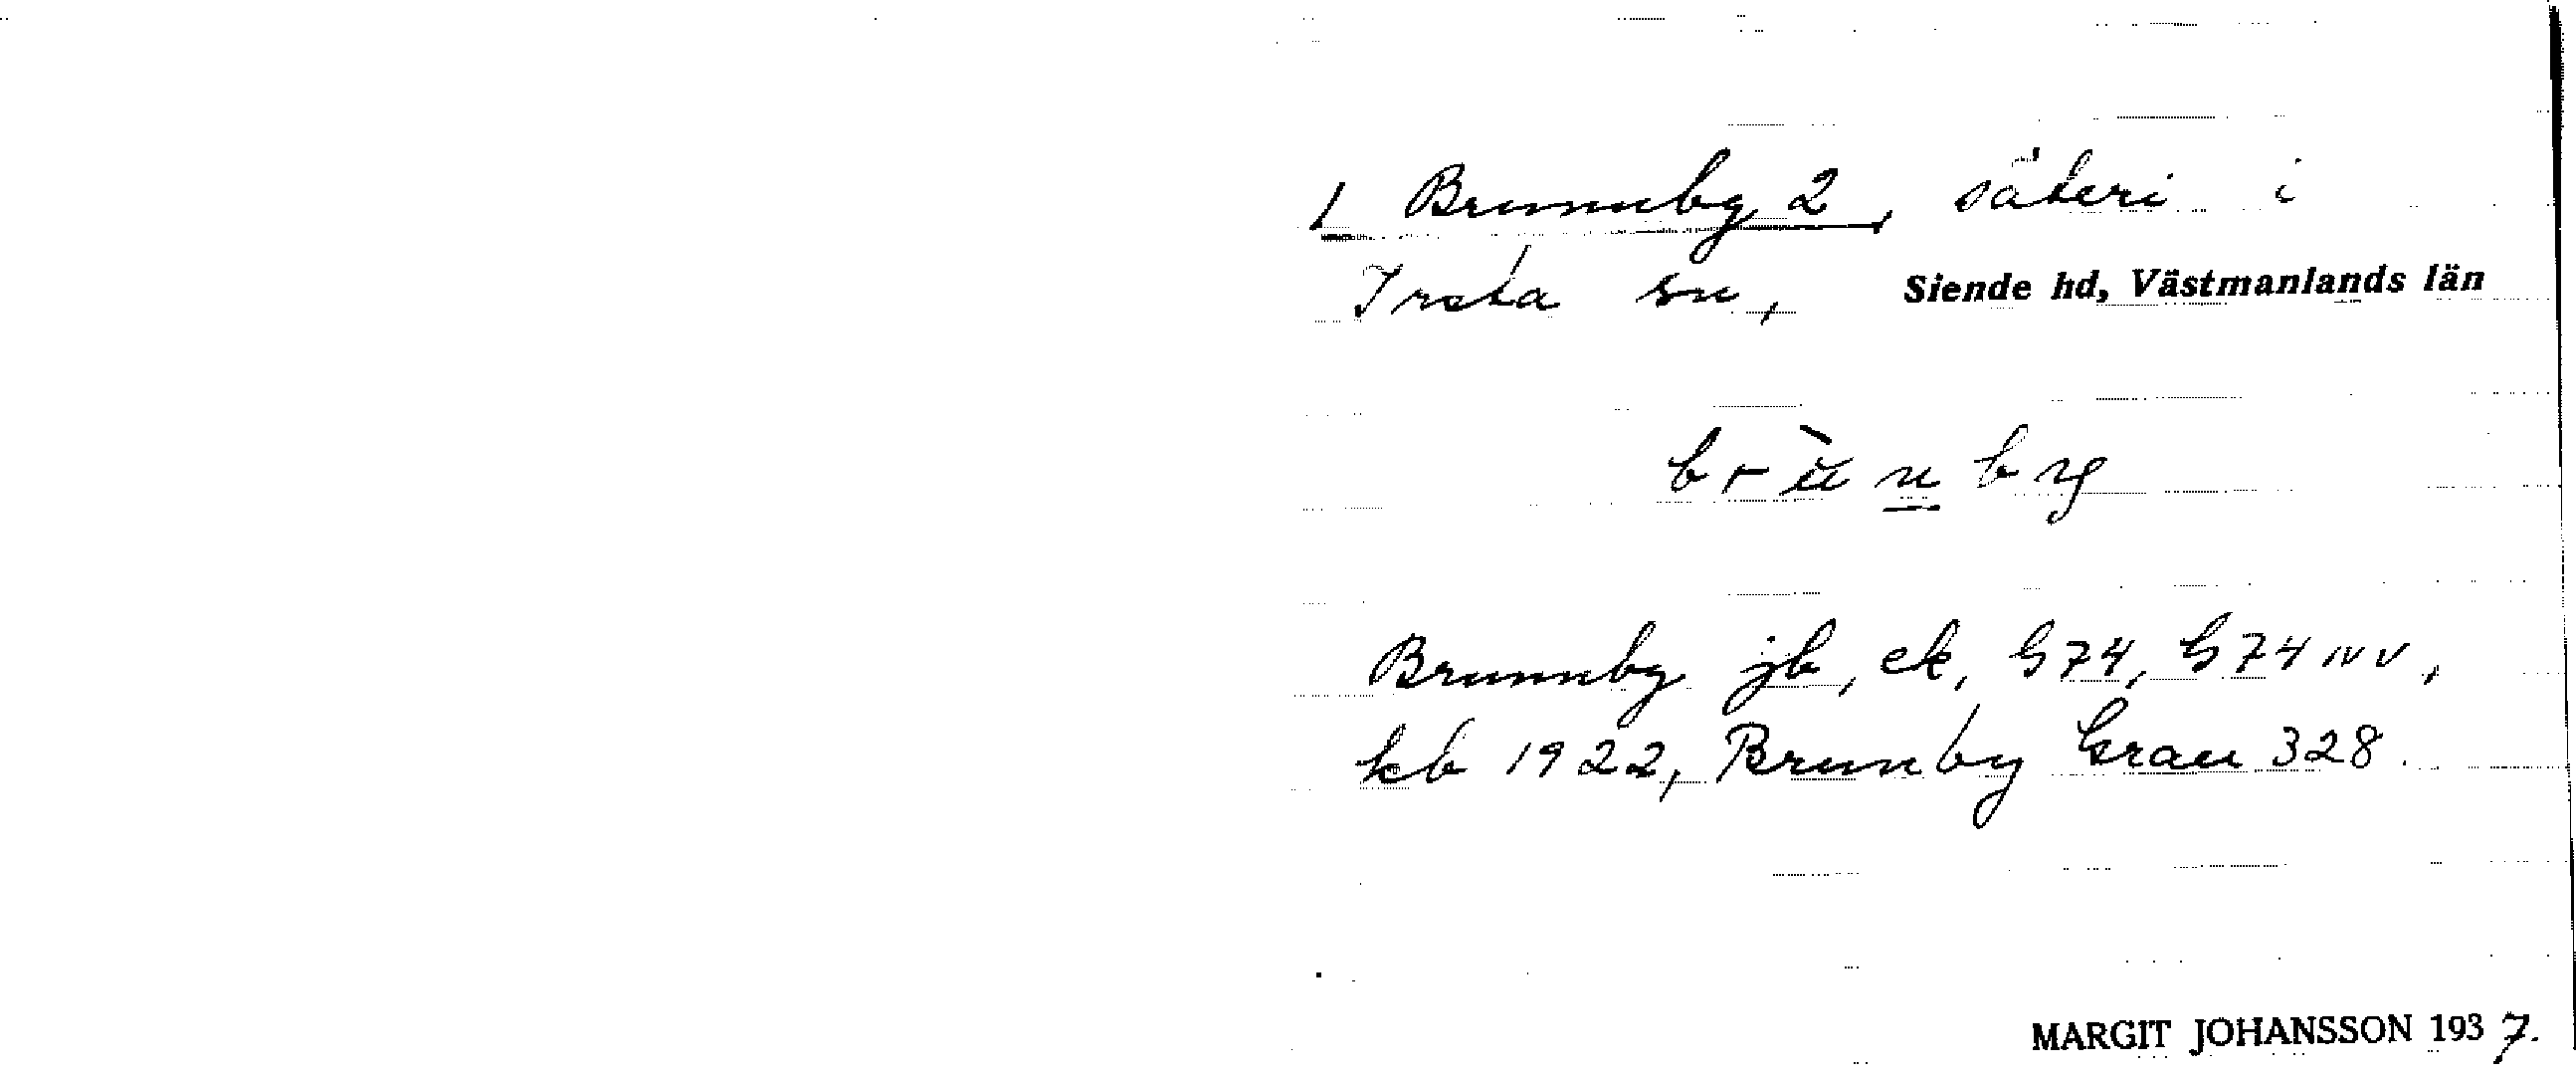 1 Brunnby 2, säteri i
Irsta sn, Siende hd, Västmanlands län
brùnby
Brunnby jb, ek, G74, G74 NV,
kb 1922, Brunby Grau 328.
MARGIT JOHANSSON 1937.